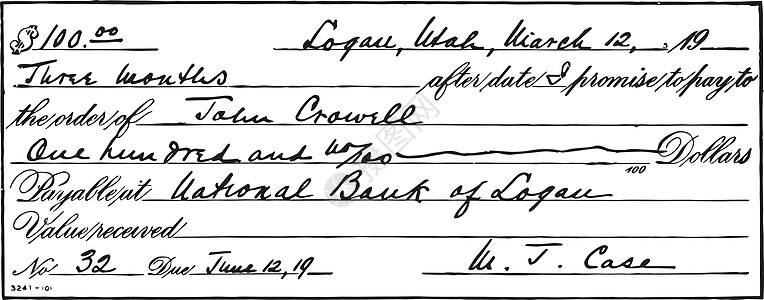 $100.00 Logan, Utah, March 12, 19
Three months after date I promise to pay to
the order of John Crowell
One hundred and no/100 Dollars
100
Payable at National Bank of Logan
Value received
No 32 Due June 12, 19 M. J. Case
3241-101